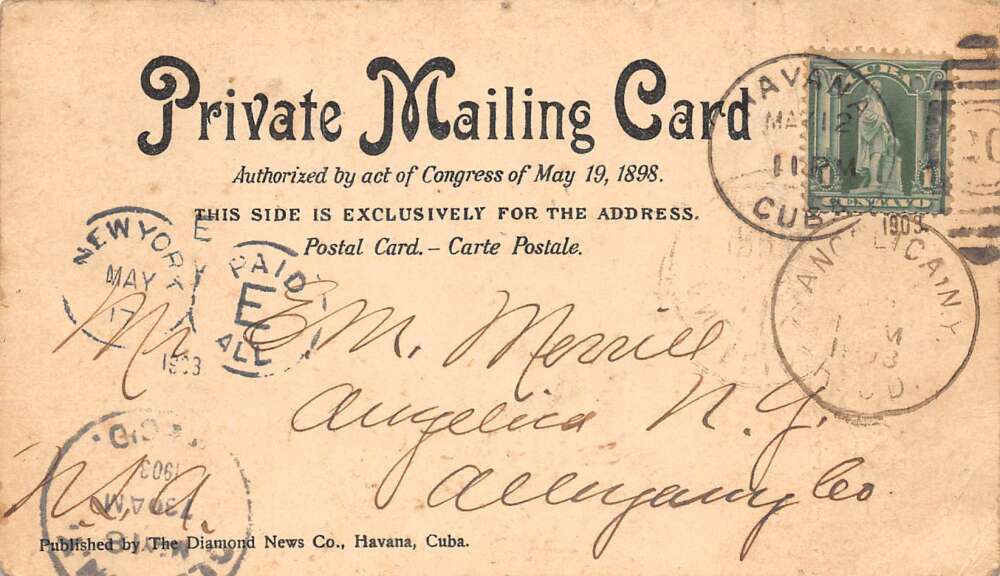 Private Mailing Card
Authorized by act of Congress of May 19, 1898.
THIS SIDE IS EXCLUSIVELY FOR THE ADDRESS.
Postal Card. – Carte Postale.
HAVANA
MAY 12
11 PM
CUBA
1903
CUBA
1 1
CENTAVO
NEW YORK
MAY
17
1903
E
PAID
E
ALL
ANGELICA N.Y.
1903
Mr E. M. Merrill
Angelica N. Y.
Allegany Co
U.S.A.
REC'D.
1903
7 30 AM
MAY 18
Published by The Diamond News Co., Havana, Cuba.